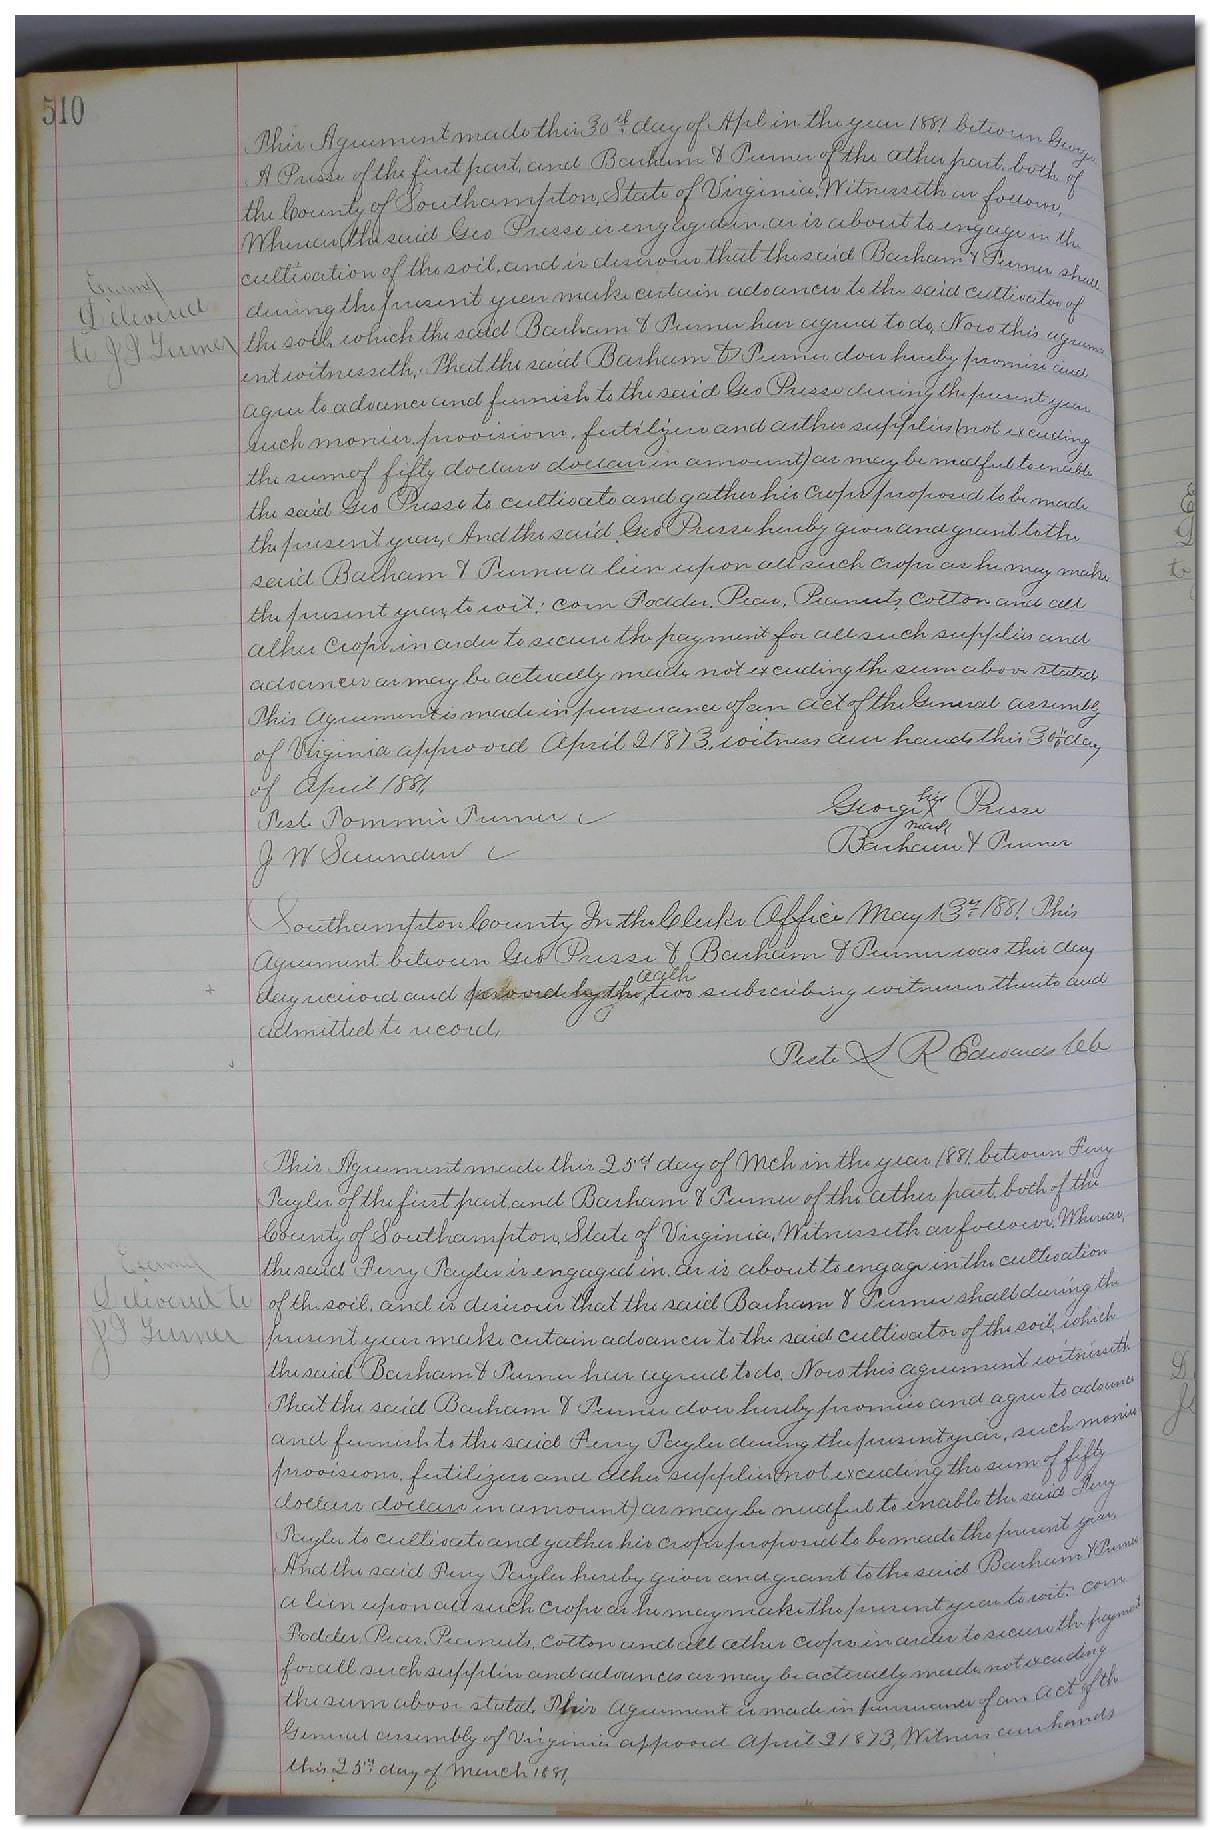 510
This Agreement made this 30th day of Apl in the year 1881 between George
A Presse of the first part, and Barham & Turner of the other part, both of
the County of Southampton, State of Virginia, Witnesseth as follows,
Whereas, the said Geo Presse is engaged in, or is about to engage in the
cultivation of the soil, and is desirous that the said Barham & Turner shall
during the present year make certain advances to the said cultivator of
the soil, which the said Barham & Turner has agreed to do, Now this agreem
ent witnesseth, That the said Barham & Turner does hereby promise and
agree to advance and furnish to the said Geo Presse during the present year
such monies, provisions, fertilizers and other supplies (not exceeding
the sum of fifty dollars dollars in amount) as may be needful to enable
the said Geo Presse to cultivate and gather his crops proposed to be made
the present year, And the said Geo Presse hereby gives and grant to the
said Barham & Turner a lien upon all such crops as he may make
the present year, to wit: corn Fodder, Peas, Peanuts, Cotton and all
other Crops, in order to secure the payment for all such supplies and
advances as may be actually made not exceeding the sum above stated
This Agreement is made in pursuance of an act of the General assembly
of Virginia approved April 2 1873, witness our hands this 30th day
of April 1881,
Test Tommie Turner
J W Saunders
George his X Presse
mark
Barham & Turner
Southampton County In the Clerks Office May 13th 1881 This
Agreement between Geo Presse & Barham & Turner was this day
day received and proved by the oath two subscribing witnesses thereto and
admitted to record,
Teste L R Edwards CC
Examd
Delivered
to J J Turner
This Agreement made this 25th day of Mch in the year 1881, between Ferry
Tayler of the first part, and Barham & Turner of the other part, both of the
County of Southampton, State of Virginia, Witnesseth as follows, Whereas,
the said Ferry Tayler is engaged in, or is about to engage in the cultivation
of the soil, and is desirous that the said Barham & Turner shall during the
present year make certain advances to the said cultivator of the soil, which
the said Barham & Turner has agreed to do, Now this agreement witnesseth
That the said Barham & Turner does hereby promise and agree to advance
and furnish to the said Ferry Tayler during the present year, such monies
provisions, fertilizers and other supplies (not exceeding the sum of fifty
dollars dollars in amount) as may be needful to enable the said Ferry
Tayler to cultivate and gather his crops proposed to be made the present year,
And the said Ferry Tayler hereby gives and grant to the said Barham & Turner
a lien upon all such crops as he may make the present year to wit: corn
Fodder, Peas, Peanuts, Cotton and all other crops in order to secure the payment
for all such supplies and advances as may be actually made not exceeding
the sum above stated, This Agreement is made in pursuance of an Act of the
General assembly of Virginia approved April 2 1873, Witness our hands
this 25th day of March 1881,
Examd
Delivered to
J J Turner